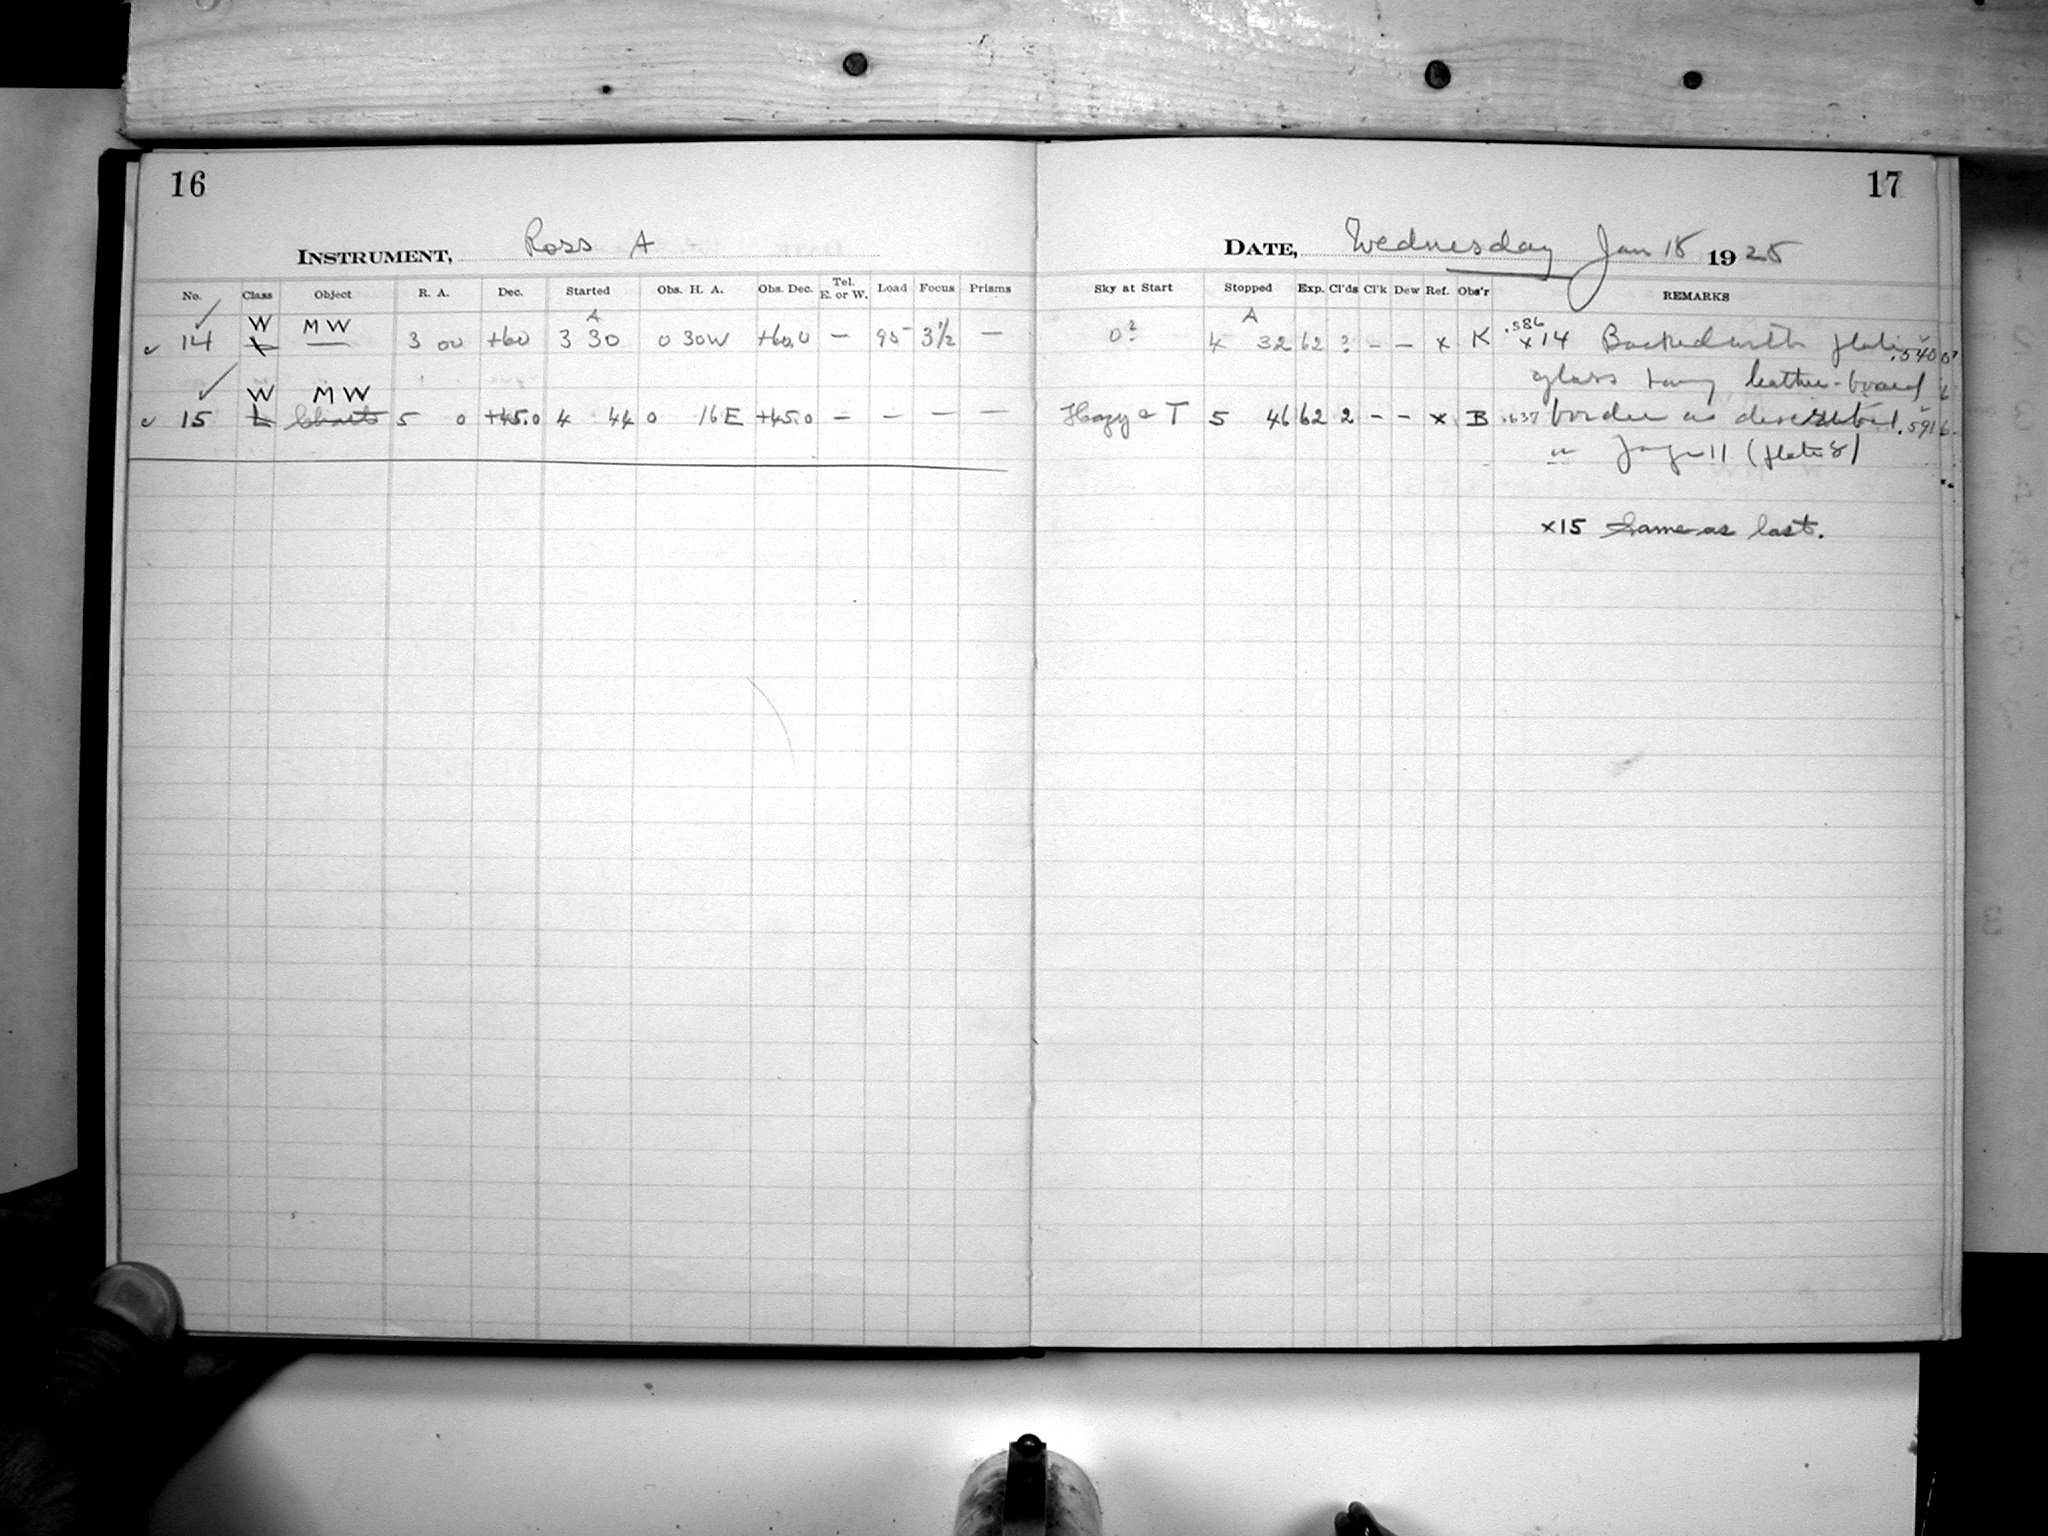 16
17
INSTRUMENT, Ross A
DATE, Wednesday Jan 18 1928
No. Class Object R. A. Dec. Started Obs. H. A. Obs. Dec. Tel. E. or W. Load Focus Prisms
Sky at Start Stopped Exp. Cl'ds Cl'k Dew Ref. Obs'r REMARKS
14 W MW 3 00 +60 A 3 30 0 30W +60.0 — 95 3½ —
0? A 4 32 62 ? – – x K .586 x14 Backed with plate .540
glass leather-board
15 W L MW Charts 5 0 +45.0 4 44 0 16E +45.0 – – — —
Hazy & T 5 46 62 2 – – x B .637 border as described .591
on page 11 (plate 8)
x15 Same as last.